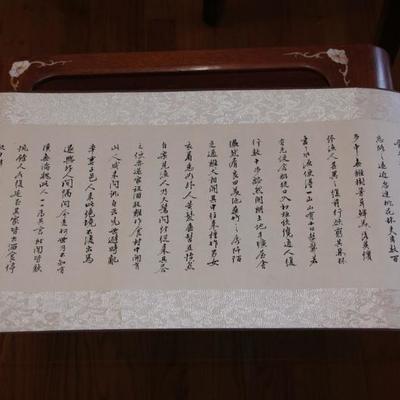 忘路之遠近忽逢桃花林夾岸數百
步中無雜樹芳草鮮美落英繽
紛漁人甚異之復前行欲窮其林林
盡水源便得一山山有小口髣髴若
有光便舍船從口入初極狹纔通人復
行數十步豁然開朗土地平曠屋舍
儼然有良田美池桑竹之屬阡陌
交通雞犬相聞其中往來種作男女
衣著悉如外人黃髮垂髫並怡然
自樂見漁人乃大驚問所從來具答
之便要還家設酒殺雞作食村中聞有
此人咸來問訊自云先世避秦時亂
率妻子邑人來此絕境不復出焉
遂與外人間隔問今是何世乃不知有
漢無論魏晉此人一一為具言所聞皆歎
惋餘人各復延至其家皆出酒食停